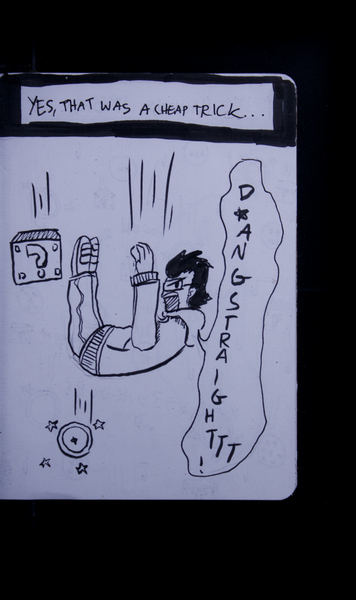 YES, THAT WAS A CHEAP TRICK...
?
DANGSTRAIGHTTT!